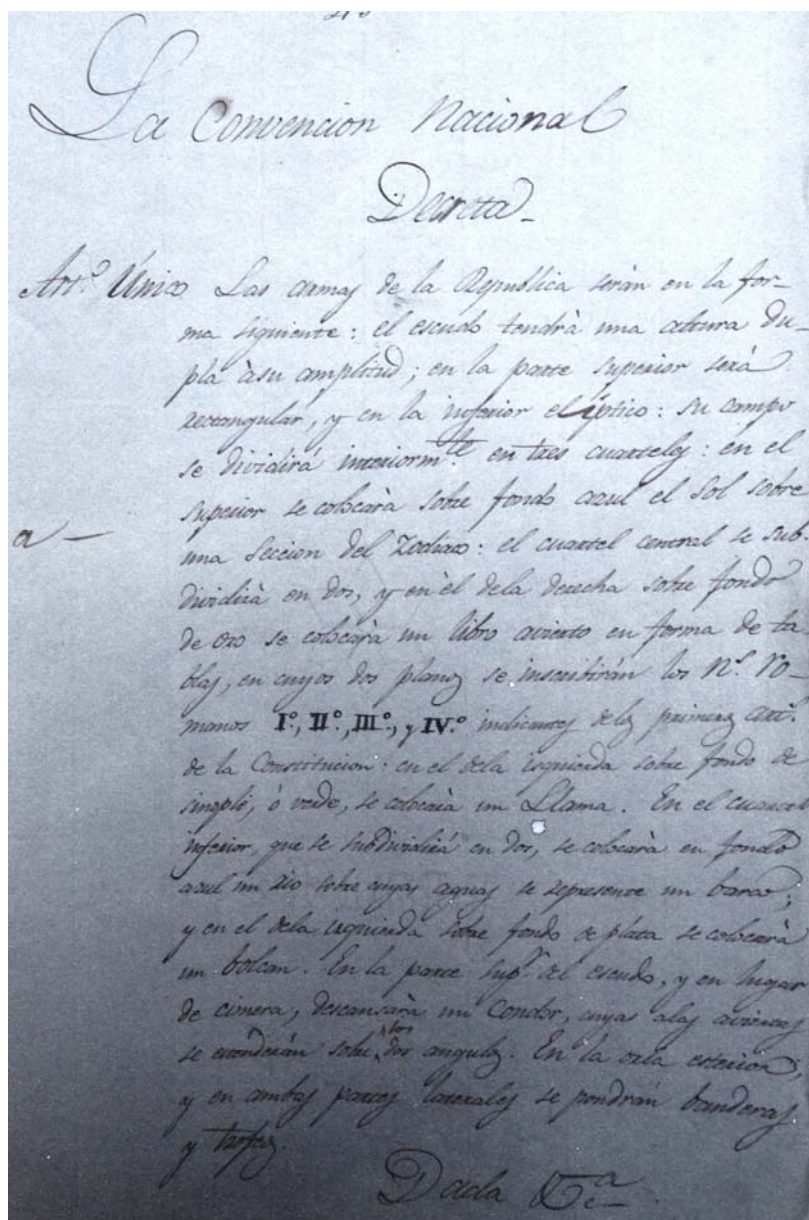 La Convencion Nacional
Decreta_
Art.º Único Las armas de la Republica serán en la for-
ma siguiente: el escudo tendrà una altura du-
pla àsu amplitud; en la parte superior será
rectangular, y en la inferior elíptico: su campo
se dividirá interiorm.te en tres cuarteles: en el
superior se colocarà sobre fondo azul el Sol sobre
a — una Seccion del Zodiaco: el cuartel central se sub-
dividirà en dos, y en èl dela derecha sobre fondo
de oro se colocarà un libro avierto en forma de ta
blas, en cuyos dos planos se inscribirán los N.s ro-
manos I.º, II.º, III.º, y IV.º indicantes delos primeros art.s
de la Constitucion: en el dela izquierda sobre fondo de
sinople, ò verde, se colocarà un Llama. En el cuartel
inferior, que se subdividirá en dos, se colocarà en fondo
azul un rio sobre cuyas aguas se represente un barco;
y en el dela izquierda sobre fondo de plata se colocarà
un bolcan. En la parte sup.r del escudo, y en lugar
de cimera, descansarà un Condor, cuyas alas aviertas
se estenderán sobre los dos angulos. En la orla esterior,
y en ambas partes laterales se pondrán banderas
y trofeos.
Dada &.a